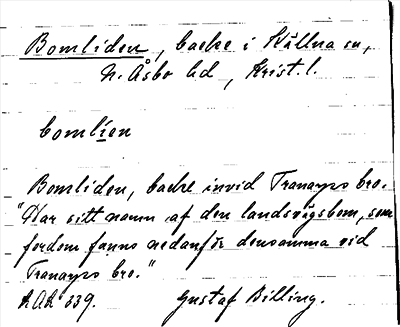 Bomliden, backe i Källna sn,
N. Åsbo hd, Krist. l.
bomlien
Bomliden, backe invid Tranarps bro.
"Har sitt namn af den landsvägsbom, som
fordom fanns nedanför densamma vid
Tranarps bro."
339.
Gustaf Billing.